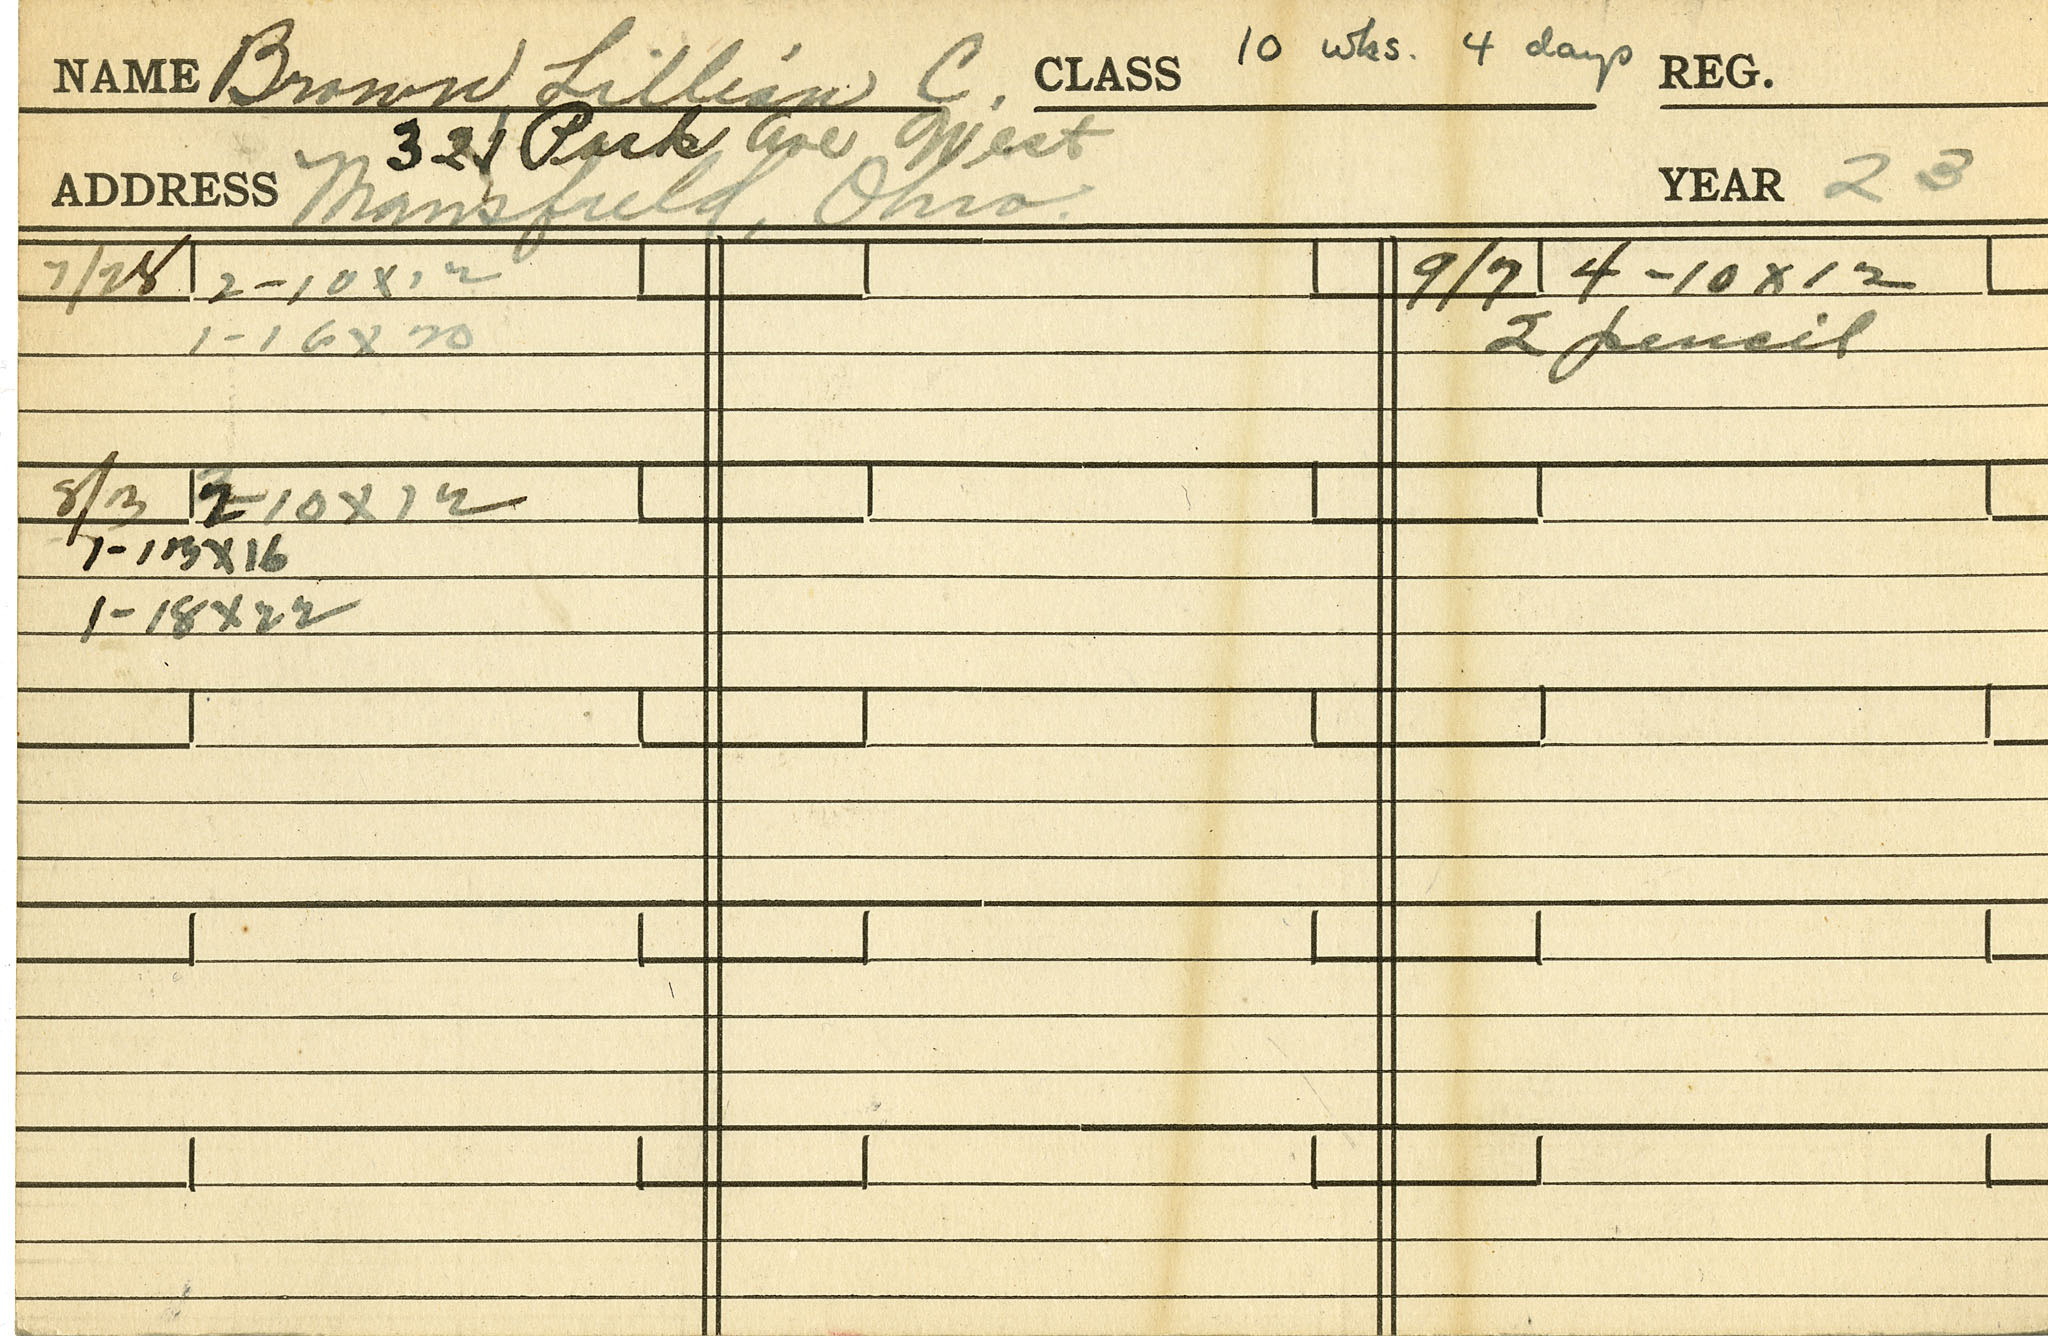 NAME Brown Lillian C. CLASS 10 wks. 4 days REG.
321 Park Ave West
ADDRESS Mansfield, Ohio. YEAR 23
7/28 2-10X12 9/7 4-10X12
1-16X20 2 pencil
8/3 2-10X12
1-13X16
1-18X22